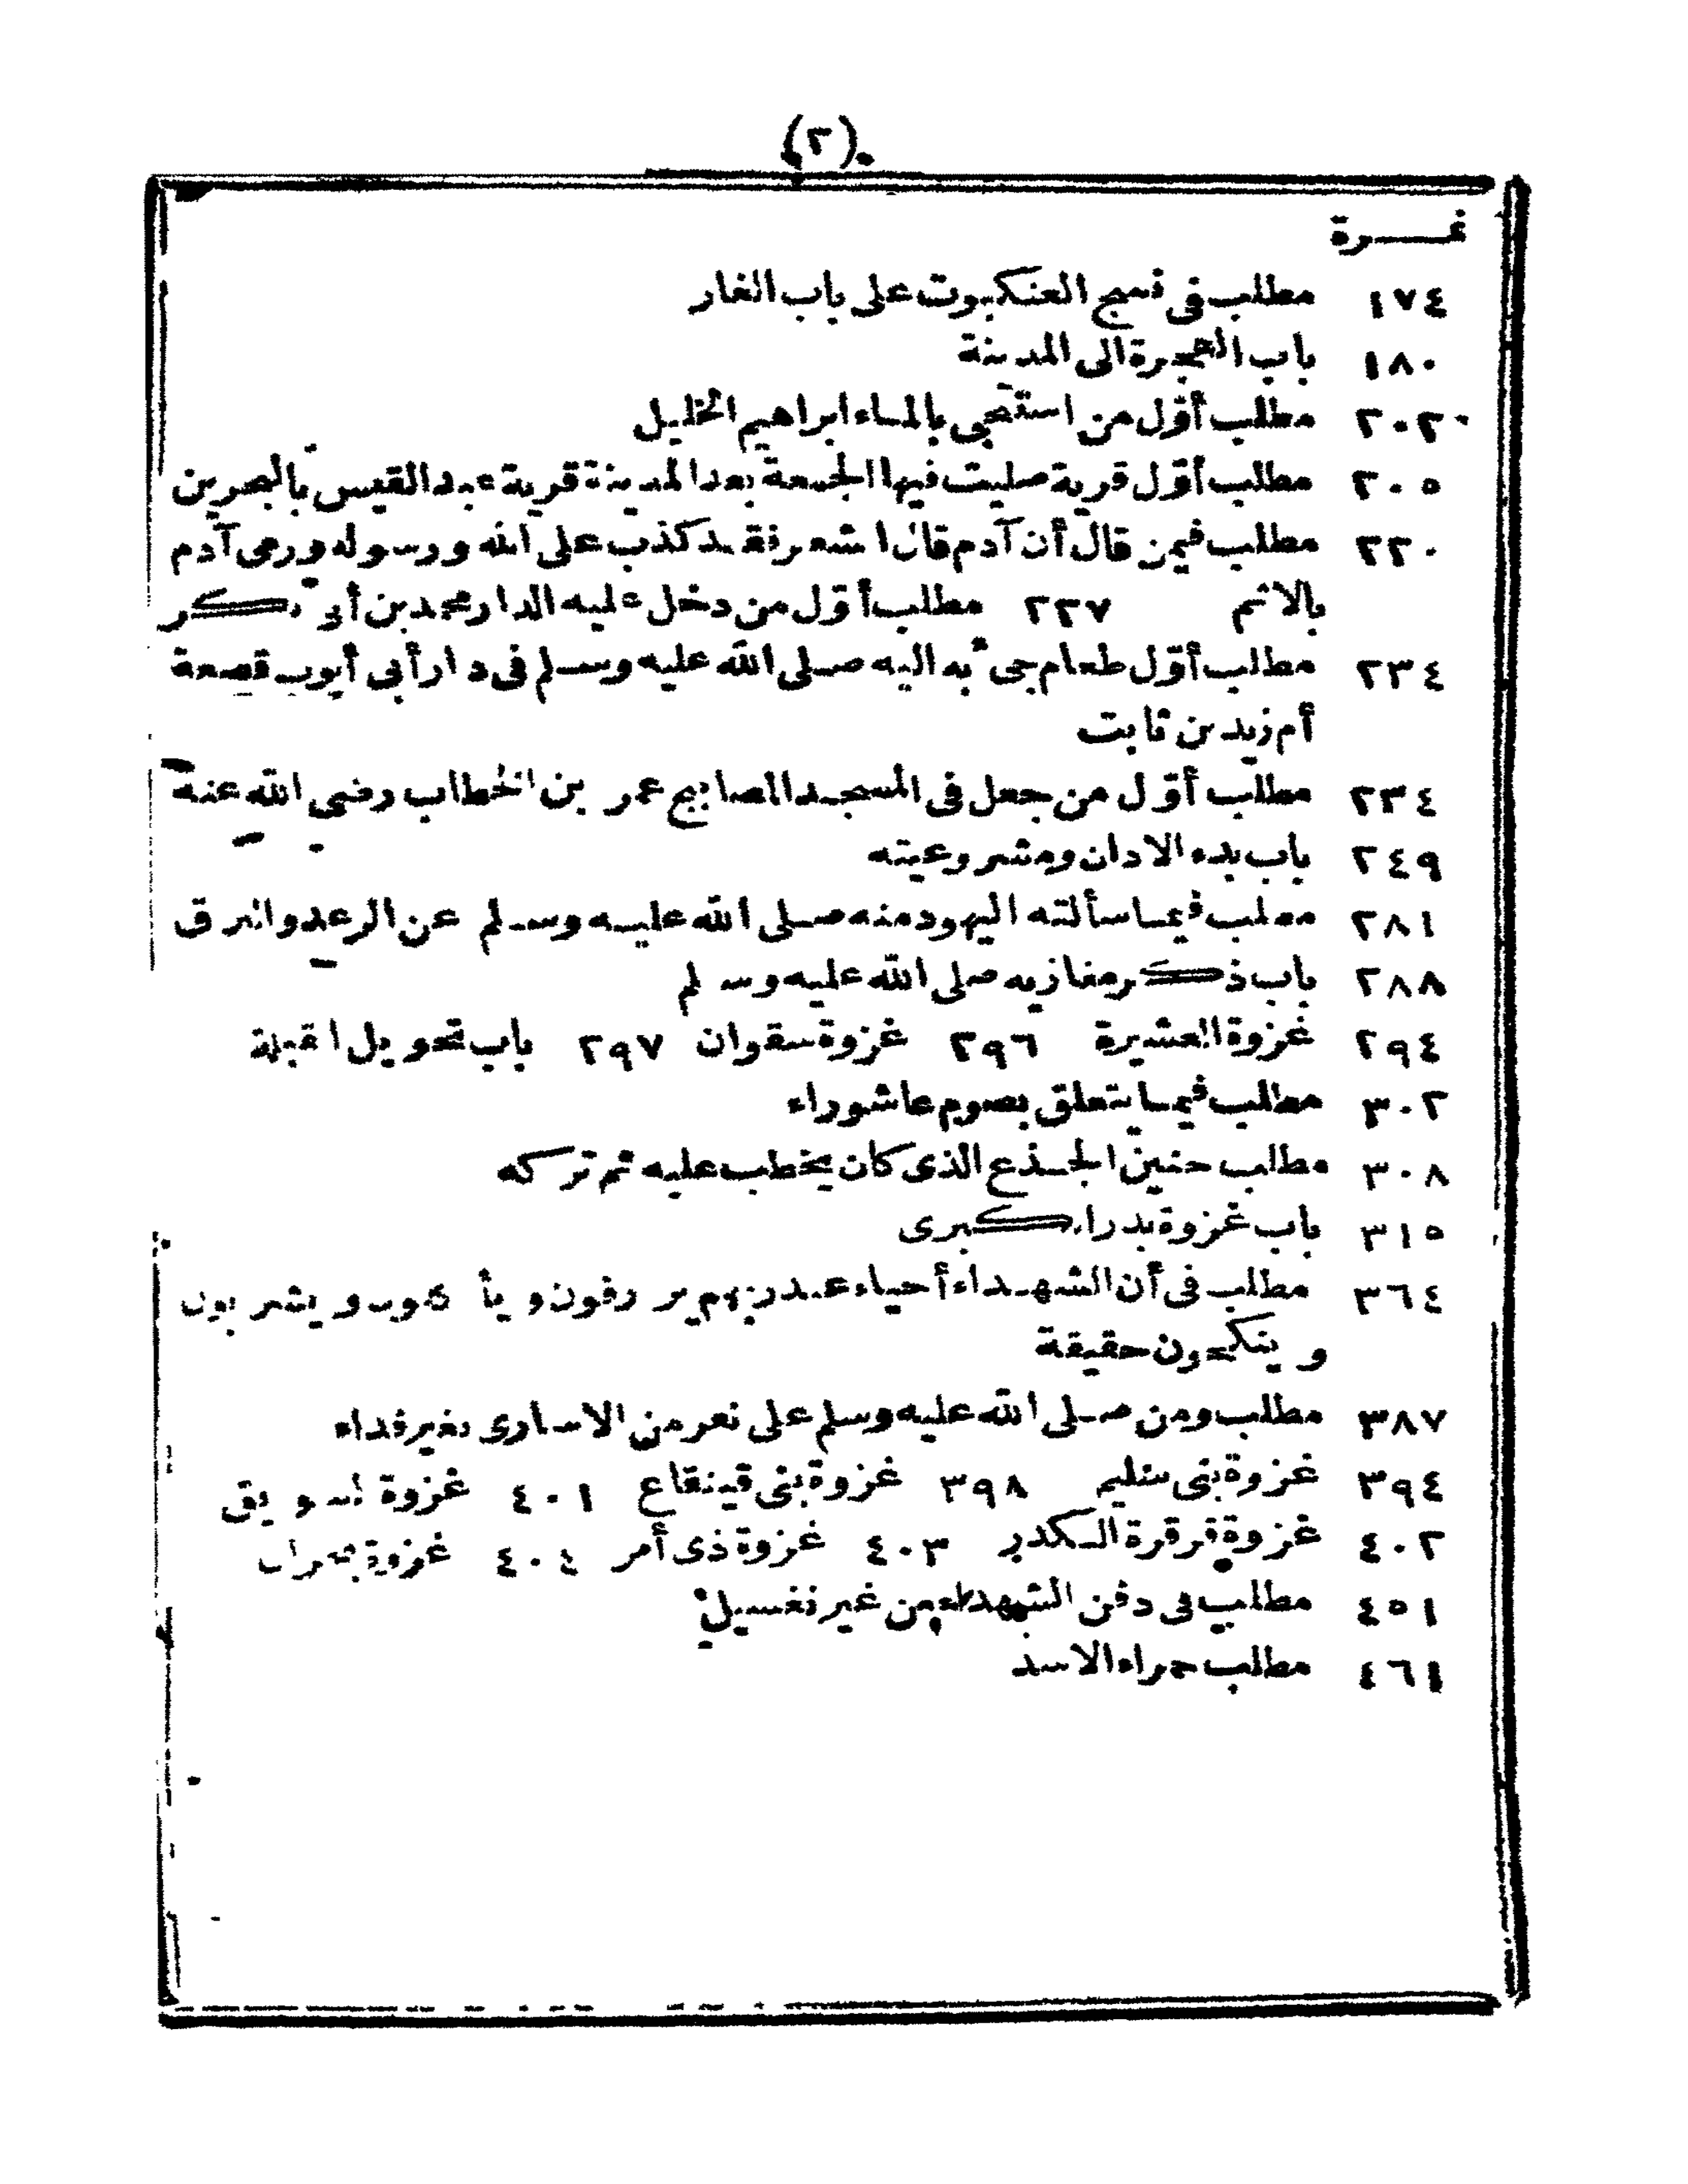 (٢)
نمـــرة
١٧٤ مطلب فى نسج العنكبوت على باب الغار
١٨٠ باب الهجرة الى المدينة
٢٠٢ مطلب أوّل من استنجى بالماء ابراهيم الخليل
٢٠٥ مطلب أوّل قرية صليت فيها الجمعة بعد المدينة قرية عبد القيس بالبحرين
٢٢٠ مطلب فيمن قال أن آدم قال شعرا فقد كذب على الله ورسوله ورمى آدم
بالاثم ٢٢٧ مطلب أوّل من دخل عليه الدار محمد بن أبى بكر
٢٣٤ مطلب أوّل طعام جىء به اليه صلى الله عليه وسلم فى دار أبى أيوب قصعة
أم زيد بن ثابت
٢٣٤ مطلب أوّل من جعل فى المسجد المصابيح عمر بن الخطاب رضى الله عنه
٢٤٩ باب بدء الاذان ومشروعيته
٢٨١ مطلب فيما سألته اليهود منه صلى الله عليه وسلم عن الرعد والبرق
٢٨٨ باب ذكر مغازيه صلى الله عليه وسلم
٢٩٤ غزوة العشيرة ٢٩٦ غزوة سفوان ٢٩٧ باب تحويل القبلة
٣٠٢ مطلب فيما يتعلق بصوم عاشوراء
٣٠٨ مطلب حنين الجذع الذى كان يخطب عليه ثم تركه
٣١٥ باب غزوة بدر الكبرى
٣٦٤ مطلب فى أن الشهداء أحياء عند ربهم يرزقون ويأكلون ويشربون
وينكحون حقيقة
٣٨٧ مطلب ومن صلى الله عليه وسلم على نفر من الاسارى بغير فداء
٣٩٤ غزوة بنى سليم ٣٩٨ غزوة بنى قينقاع ٤٠١ غزوة السويق
٤٠٢ غزوة قرقرة الكدر ٤٠٣ غزوة ذى أمر ٤٠٤ غزوة بحران
٤٥١ مطلب فى دفن الشهداء من غير تغسيل
٤٦١ مطلب حمراء الاسد